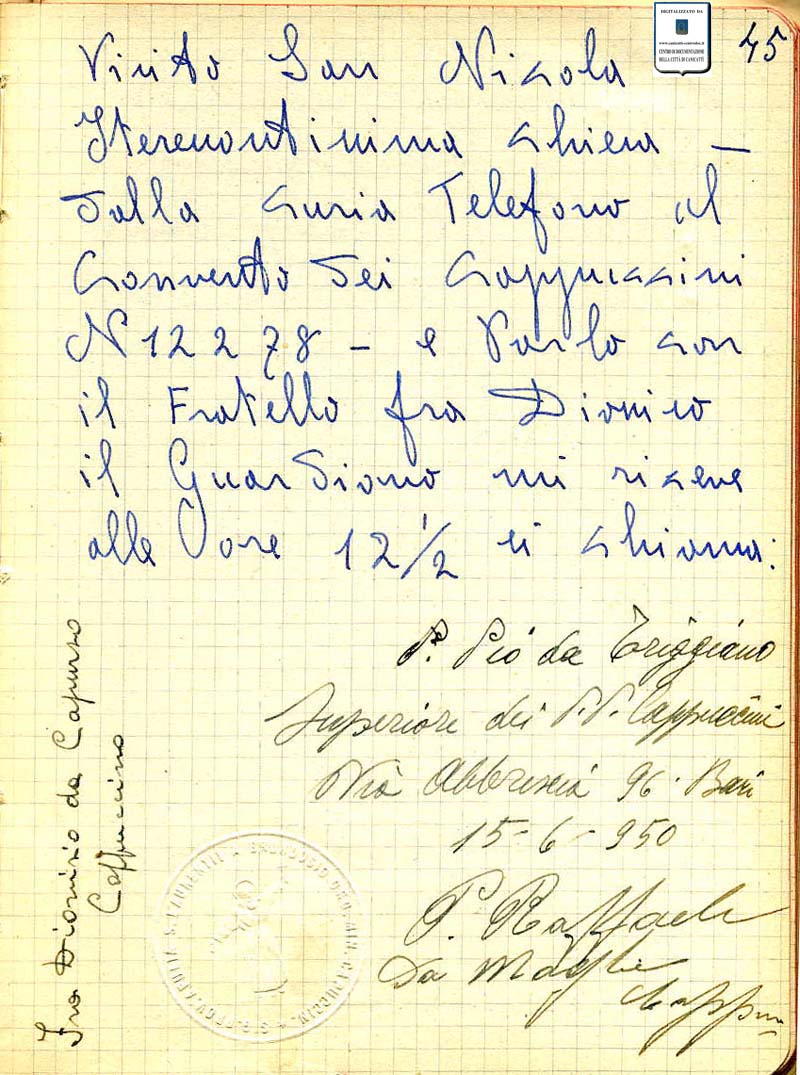 DIGITALIZZATO DA
www.canicatti-centrodoc.it
CENTRO DI DOCUMENTAZIONE
DELLA CITTÀ DI CANICATTÌ
45
Visito San Nicola
chiesa –
Dalla curia Telefono al
Convento Dei Cappuccini
N 12278 – e Parlo con
il Fratello fra Dionisio
il Guardiano mi riceve
alle ore 12 1/2 si chiama:
P. Pio da Triggiano
Superiore dei P.P. Cappuccini
Via Abbrescia 96 - Bari
15-6-950
P. Raffaele
Da Maglie
Capp
Fra Dionisio da Capurso
Cappuccino